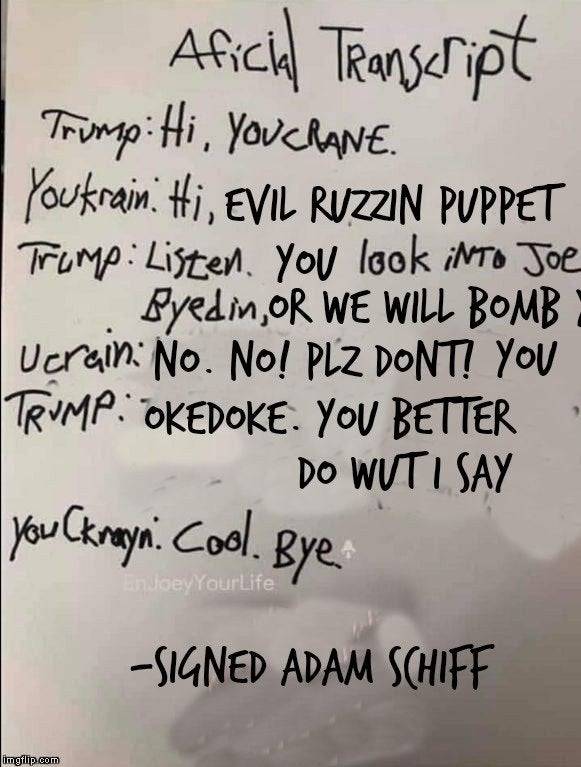 Aficial Transcript
Trump: Hi, YOUCRANE.
Youkrain: Hi, EVIL RUZZIN PUPPET
Trump: Listen. YOU look iNTO Joe
Byedin, OR WE WILL BOMB
Ucrain: NO. NO! PLZ DONT! YOU
TRUMP: OKEDOKE. YOU BETTER
DO WUT I SAY
YouCkrayn: Cool. Bye.
EnJoeyYourLife
-SIGNED ADAM SCHIFF
imgflip.com